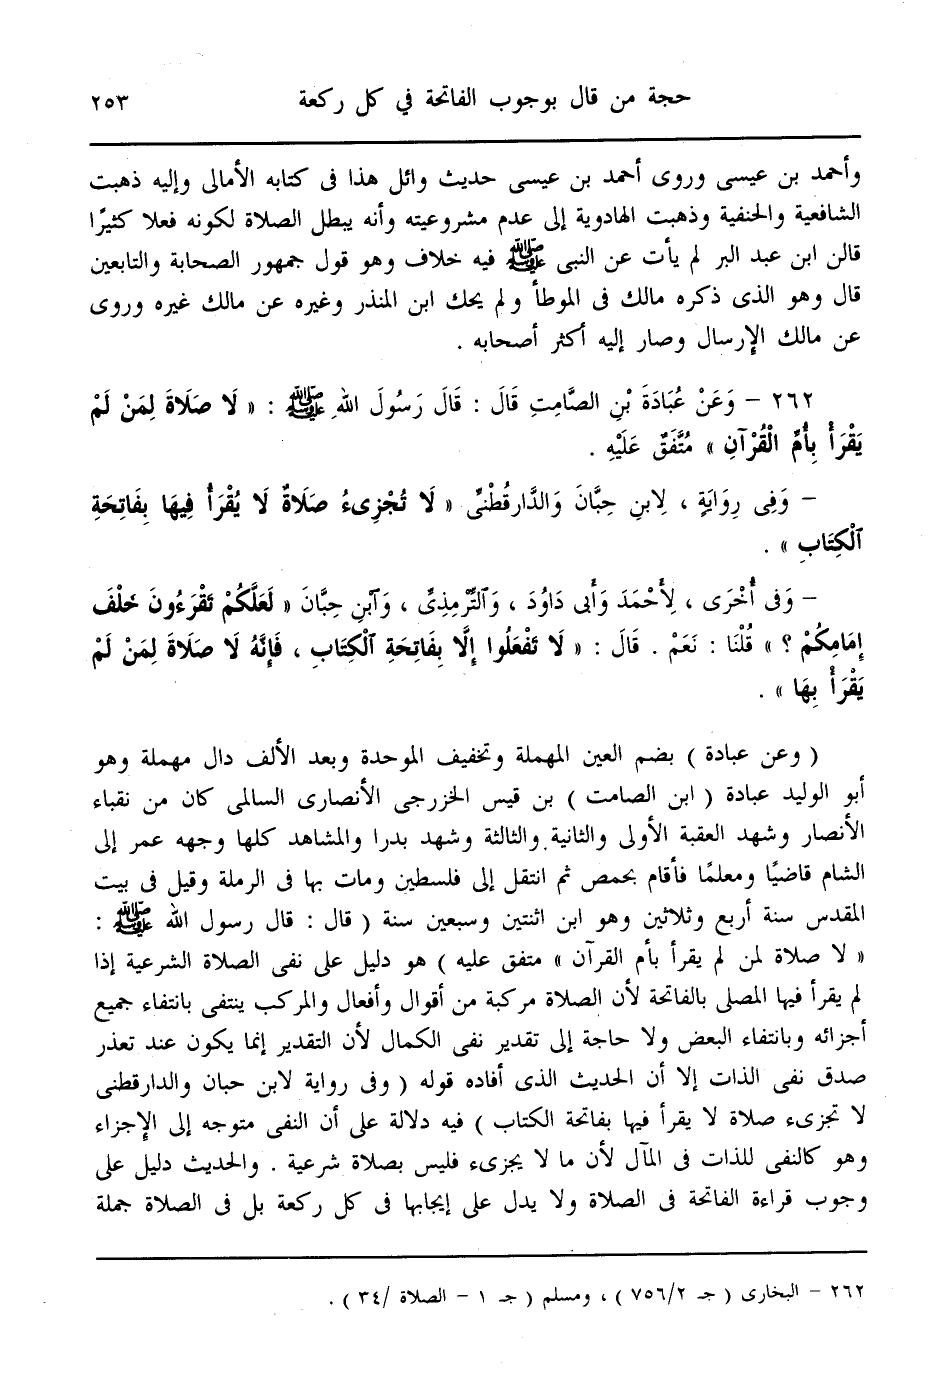 حجة من قال بوجوب الفاتحة في كل ركعة ٢٥٣
وأحمد بن عيسى وروى أحمد بن عيسى حديث وائل هذا فى كتابه الأمالى وإليه ذهبت
الشافعية والحنفية وذهبت الهادوية إلى عدم مشروعيته وأنه يبطل الصلاة لكونه فعلا كثيرًا
قالن ابن عبد البر لم يأت عن النبى ﷺ فيه خلاف وهو قول جمهور الصحابة والتابعين
قال وهو الذى ذكره مالك فى الموطأ ولم يحك ابن المنذر وغيره عن مالك غيره وروى
عن مالك الإرسال وصار إليه أكثر أصحابه .
٢٦٢ – وَعَنْ عُبَادَةَ بْنِ الصَّامِتِ قَالَ : قَالَ رَسُولَ اللهِ ﷺ : « لَا صَلَاةَ لِمَنْ لَمْ
يَقْرَأْ بِأُمِّ الْقُرْآنِ » مُتَّفَقٌ عَلَيْهِ .
– وَفِى رِوَايَةٍ ، لِابنِ حِبَّانَ وَالدَّارقُطْنىِّ « لَا تُجْزِىءُ صَلَاةٌ لَا يُقْرَأُ فِيهَا بِفَاتِحَةِ
ٱلْكِتَابِ » .
– وَفى أُخْرَى ، لِأَحْمَدَ وَأَبى دَاوُدَ ، وَٱلتِّرْمِذِىِّ ، وَٱبنِ حِبَّانَ « لَعَلَّكُمْ تَقْرَءُونَ خَلْفَ
إِمَامِكُمْ ؟ » قُلْنَا : نَعَمْ . قَالَ : « لَا تَفْعَلُوا إِلَّا بِفَاتِحَةِ ٱلْكِتَابِ ، فَإِنَّهُ لَا صَلَاةَ لِمَنْ لَمْ
يَقْرَأْ بِهَا » .
( وعن عبادة ) بضم العين المهملة وتخفيف الموحدة وبعد الألف دال مهملة وهو
أبو الوليد عبادة ( ابن الصامت ) بن قيس الخزرجى الأنصارى السالمى كان من نقباء
الأنصار وشهد العقبة الأولى والثانية والثالثة وشهد بدرا والمشاهد كلها وجهه عمر إلى
الشام قاضيًا ومعلمًا فأقام بحمص ثم انتقل إلى فلسطين ومات بها فى الرملة وقيل فى بيت
المقدس سنة أربع وثلاثين وهو ابن اثنتين وسبعين سنة ( قال : قال رسول الله ﷺ :
« لا صلاة لمن لم يقرأ بأم القرآن » متفق عليه ) هو دليل على نفى الصلاة الشرعية إذا
لم يقرأ فيها المصلى بالفاتحة لأن الصلاة مركبة من أقوال وأفعال والمركب ينتفى بانتفاء جميع
أجزائه وبانتفاء البعض ولا حاجة إلى تقدير نفى الكمال لأن التقدير إنما يكون عند تعذر
صدق نفى الذات إلا أن الحديث الذى أفاده قوله ( وفى رواية لابن حبان والدارقطنى
لا تجزىء صلاة لا يقرأ فيها بفاتحة الكتاب ) فيه دلالة على أن النفى متوجه إلى الإجزاء
وهو كالنفى للذات فى المآل لأن ما لا يجزىء فليس بصلاة شرعية . والحديث دليل على
وجوب قراءة الفاتحة فى الصلاة ولا يدل على إيجابها فى كل ركعة بل فى الصلاة جملة
٢٦٢ – البخارى ( جـ ٧٥٦/٢ ) ، ومسلم ( جـ ١ – الصلاة /٣٤ ) .